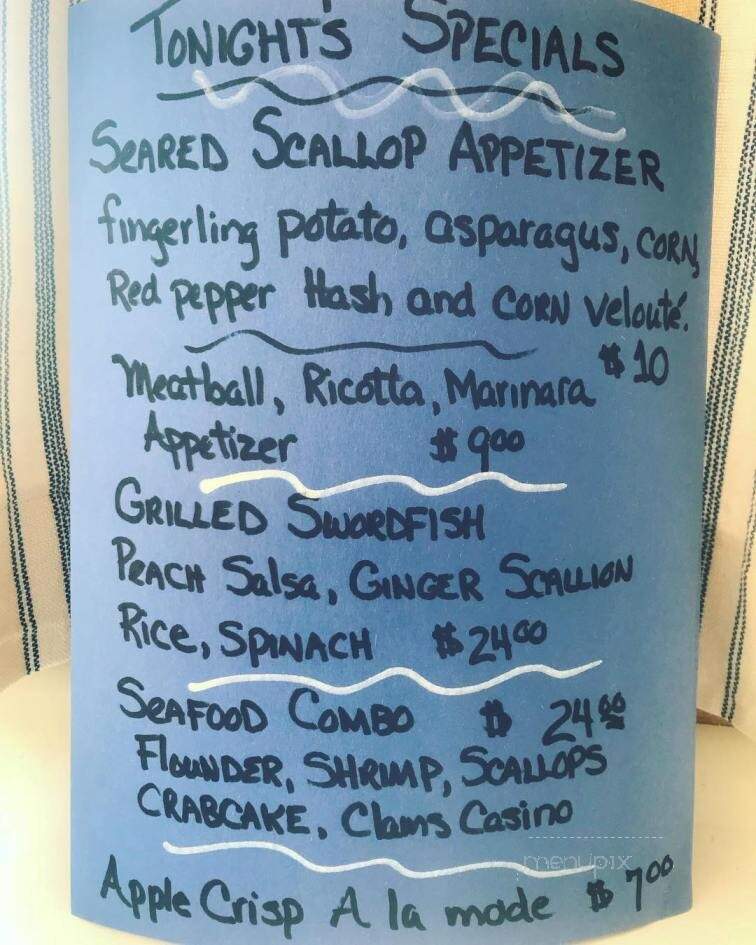 TONIGHT'S SPECIALS
SEARED SCALLOP APPETIZER
fingerling potato, asparagus, CORN,
Red pepper Hash and CORN velouté.
$ 10
Meatball, Ricotta, Marinara
Appetizer $ 9.00
GRILLED SWORDFISH
PEACH Salsa, GINGER SCALLION
Rice, SPINACH $ 24.00
SEAFOOD COMBO $ 24.00
FLOUNDER, SHRIMP, SCALLOPS
CRABCAKE, Clams Casino
menupix
Apple Crisp A la mode $ 7.00